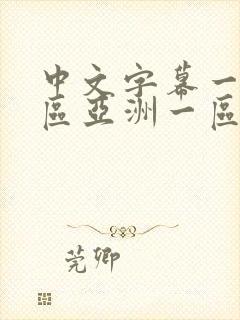 中文字幕一
區亞洲一區
莞卿